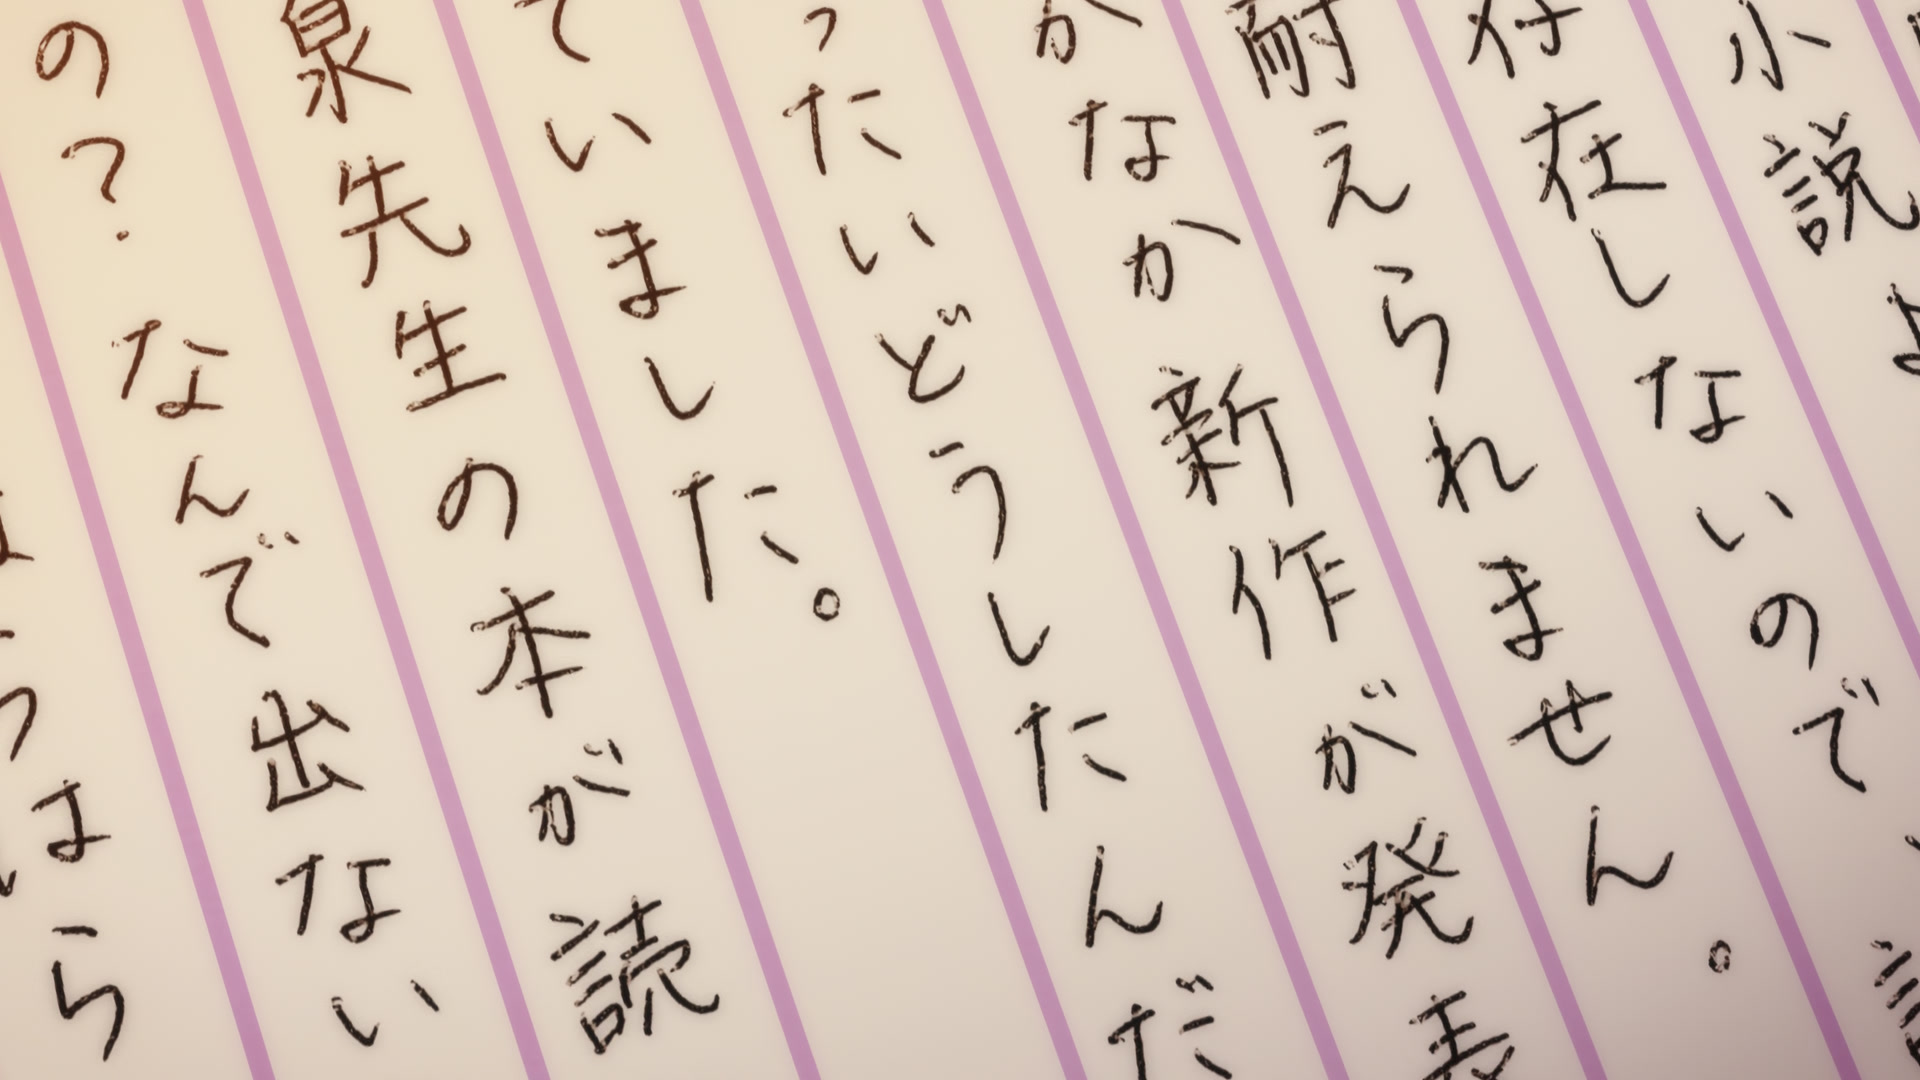 小説よ
存在しないので
耐えられません。
かなか新作が発表
ったいどうしたんだ
ていました。
泉先生の本が読
の？なんで出ない
はら